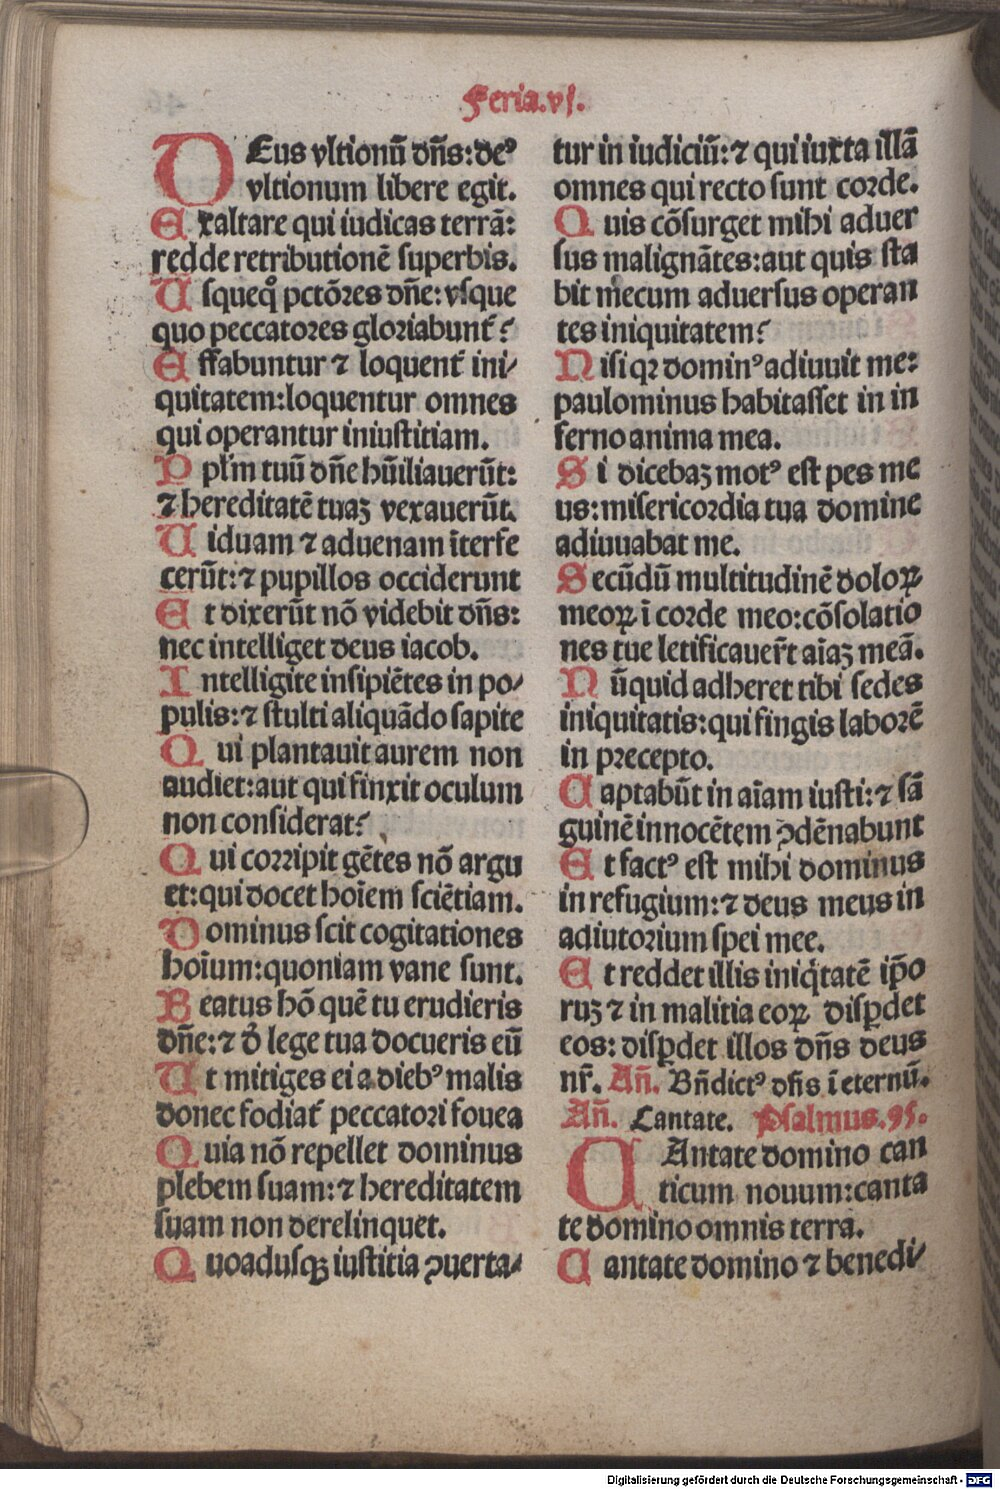 Feria.vj.
DEus vltionū dñs: deꝰ
vltionum libere egit.
Exaltare qui iudicas terrā:
redde retributionē superbis.
Usqueq̨̄ pctōres dñe: vsque
quo peccatores gloriabunt̄?
Effabuntur ⁊ loquent̄ ini/
quitatem: loquentur omnes
qui operantur iniustitiam.
Pplm̄ tuū dñe hūiliauerūt:
⁊ hereditatē tuaʒ vexauerūt.
Uiduam ⁊ aduenam īterfe
cerūt: ⁊ pupillos occiderunt
Et dixerūt nō videbit dñs:
nec intelliget deus iacob.
Intelligite insipiētes in po/
pulis: ⁊ stulti aliquādo sapite
Qui plantauit aurem non
audiet: aut qui finxit oculum
non considerat?
Qui corripit gētes nō argu
et: qui docet hoīem sciētiam.
Dominus scit cogitationes
hoīum: quoniam vane sunt.
Beatus hō quē tu erudieris
dñe: ⁊ d̄ lege tua docueris eū
Ut mitiges ei a diebꝰ malis
donec fodiat̄ peccatori fouea
Quia nō repellet dominus
plebem suam: ⁊ hereditatem
suam non derelinquet.
Quoadusqꝫ iustitia ꝯuerta/
tur in iudiciū: ⁊ qui iuxta illā
omnes qui recto sunt corde.
Quis cōsurget mihi aduer
sus malignātes: aut quis sta
bit mecum aduersus operan
tes iniquitatem?
Nisi qꝛ dominꝰ adiuuit me:
paulominus habitasset in in
ferno anima mea.
Si dicebaʒ motꝰ est pes me
us: misericordia tua domine
adiuuabat me.
Secūdū multitudinē doloꝝ
meoꝝ ī corde meo: cōsolatio
nes tue letificauer̄t aīaʒ meā.
Nūquid adheret tibi sedes
iniquitatis: qui fingis laborē
in precepto.
Captabūt in aīam iusti: ⁊ sā
guinē innocētem ꝯdēnabunt
Et factꝰ est mihi dominus
in refugium: ⁊ deus meus in
adiutorium spei mee.
Et reddet illis iniq̇tatē ip̄o
ruʒ ⁊ in malitia eoꝝ disꝑdet
eos: disꝑdet illos dñs deus
nr̄. Añ. Bñdictꝰ dñs ī eternū.
Añ. Cantate. Psalmus. 95.
CAntate domino can
ticum nouum: canta
te domino omnis terra.
Cantate domino ⁊ benedi/
Digitalisierung gefördert durch die Deutsche Forschungsgemeinschaft - DFG